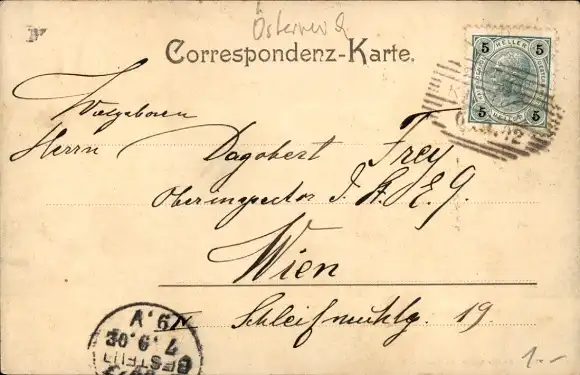 Österreich
Correspondenz-Karte.
5 HELLER 5
5 5
Wolgeboren
Herrn Dagobert Frey
Oberinspector d. St. E. G.
Wien
Schleifmühlg. 19.
IV/1
7.9.02
BESTELLT
1.-